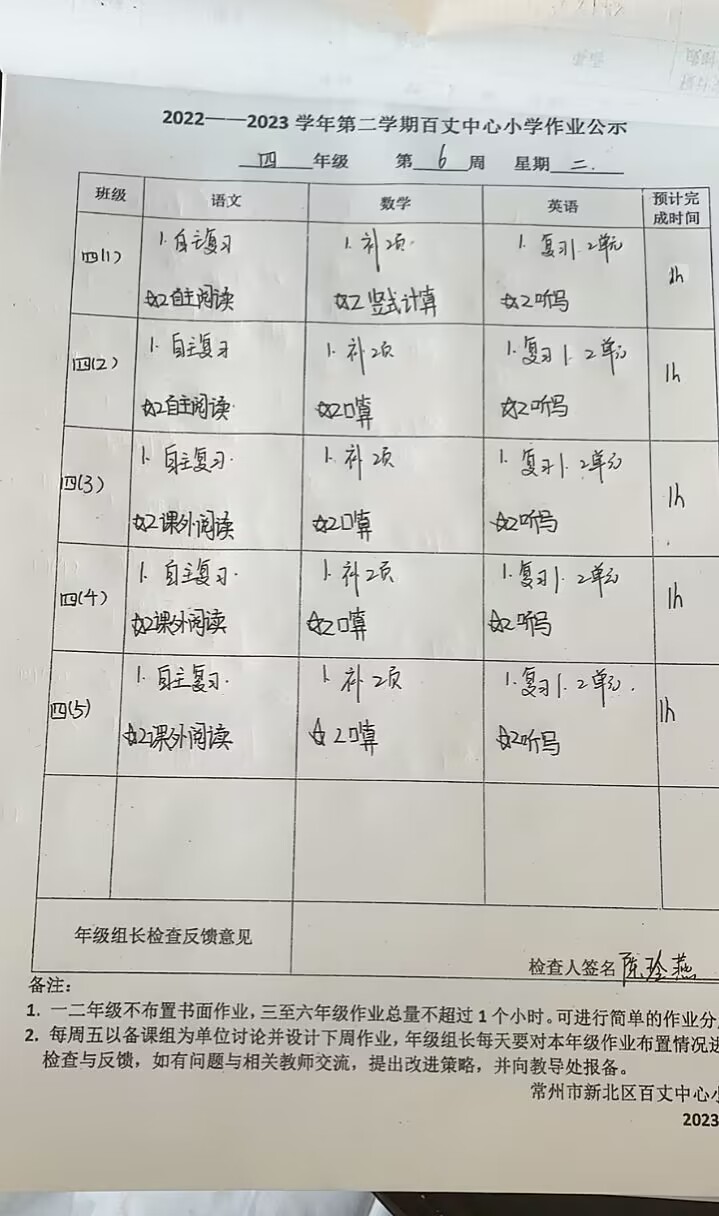 2022——2023 学年第二学期百丈中心小学作业公示
四 年级 第 6 周 星期 二.
班级 语文 数学 英语 预计完成时间
四(1) 1. 自主复习 1. 补2项. 1. 复习1.2单元 1h
☆2自主阅读 ☆2 竖式计算 ☆2听写
四(2) 1. 自主复习 1. 补2项 1. 复习1.2单元 1h
☆2自主阅读 ☆2口算 ☆2听写
四(3) 1. 自主复习. 1. 补2项 1. 复习1.2单元 1h
☆2课外阅读 ☆2口算 ☆2听写
四(4) 1. 自主复习. 1. 补2项 1. 复习1.2单元 1h
☆2课外阅读 ☆2口算 ☆2听写
四(5) 1. 自主复习. 1. 补2项 1. 复习1.2单元. 1h
☆2课外阅读 ☆2口算 ☆2听写
年级组长检查反馈意见
检查人签名 陈玲燕
备注:
1. 一二年级不布置书面作业，三至六年级作业总量不超过 1 个小时。可进行简单的作业分
2. 每周五以备课组为单位讨论并设计下周作业，年级组长每天要对本年级作业布置情况进
检查与反馈，如有问题与相关教师交流，提出改进策略，并向教导处报备。
常州市新北区百丈中心小
2023